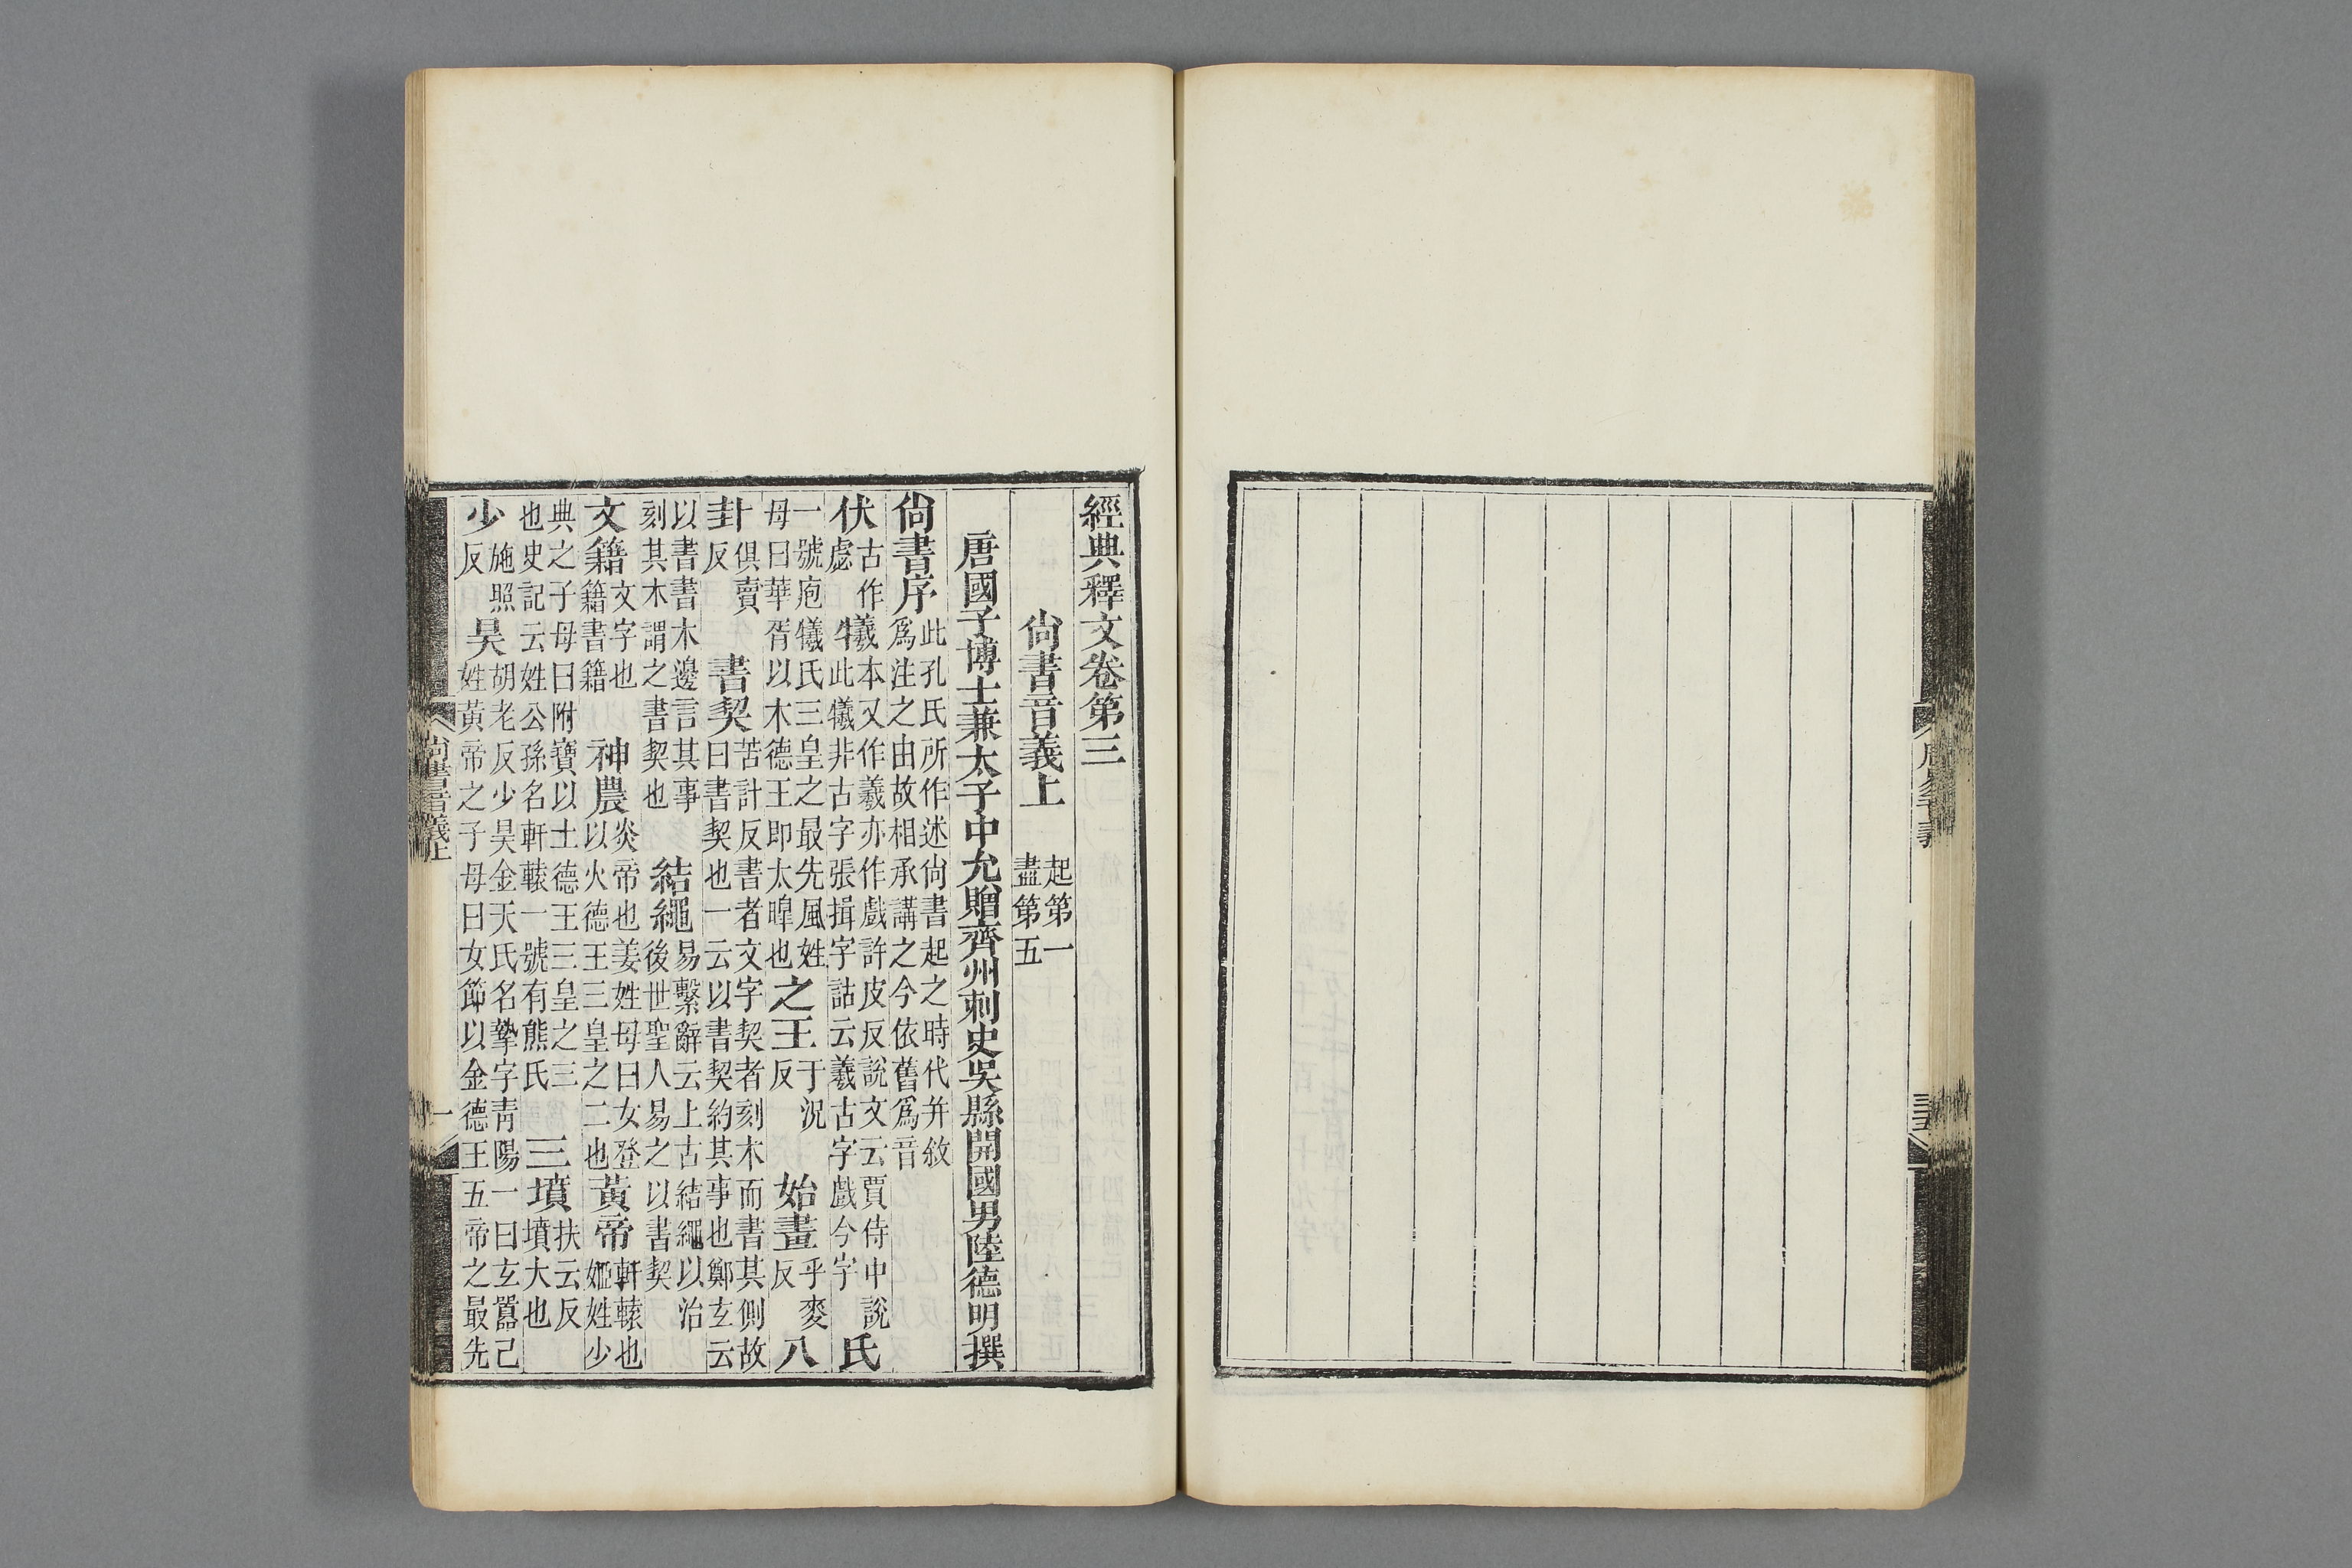 經典釋文卷第三
尙書音義上 起第一盡第五
唐國子博士兼太子中允贈齊州刺史吳縣開國男陸德明撰
尙書序 此孔氏所作述尙書起之時代并敘爲注之由故相承講之今依舊爲音
伏 古作虙 犧 本又作羲亦作戲許皮反說文云賈侍中說此犧非古字張揖字詁云羲古字戲今字 氏
一號庖犧氏三皇之最先風姓母曰華胥以木德王即太皥也 之王 于況反 始畫 乎麥反 八
卦 俱賣反 書契 苦計反書者文字契者刻木而書其側故曰書契也一云以書契約其事也鄭玄云
以書書木邊言其事刻其木謂之書契也 結繩 易繫辭云上古結繩以治後世聖人易之以書契
文籍 文字也籍書籍 神農 炎帝也姜姓母曰女登以火德王三皇之二也 黃帝 軒轅也姬姓少
典之子母曰附寶以土德王三皇之三也史記云姓公孫名軒轅一號有熊氏 三墳 扶云反墳大也
少 施照反 昊 胡老反少昊金天氏名摯字靑陽一曰玄囂己姓黃帝之子母曰女節以金德王五帝之最先
尙書音義上 一